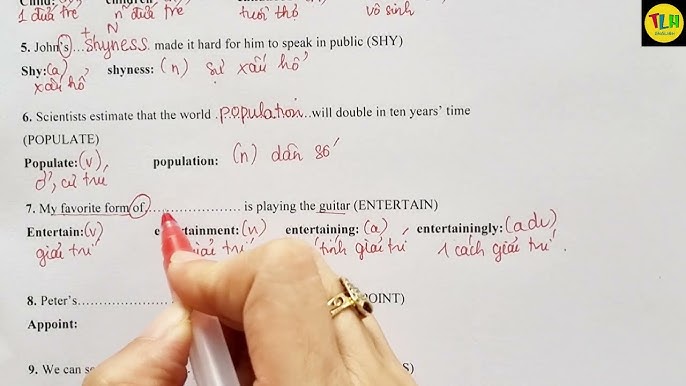 Child: children:
1 đứa trẻ n' đứa trẻ tuổi thơ vô sinh
TLH
+ N
5. John's...shyness. made it hard for him to speak in public (SHY)
Shy:(a) shyness: (n) sự xấu hổ
xấu hổ
6. Scientists estimate that the world .population..will double in ten years' time
(POPULATE)
Populate:(v) population: (n) dân số
ở, cư trú
7. My favorite form of........................ is playing the guitar (ENTERTAIN)
Entertain:(v) tainment:(n) entertaining: (a) entertainingly: (adv)
giải trí giải trí tính giải trí 1 cách giải trí.
8. Peter's........................ POINT)
Appoint:
9. We can S)